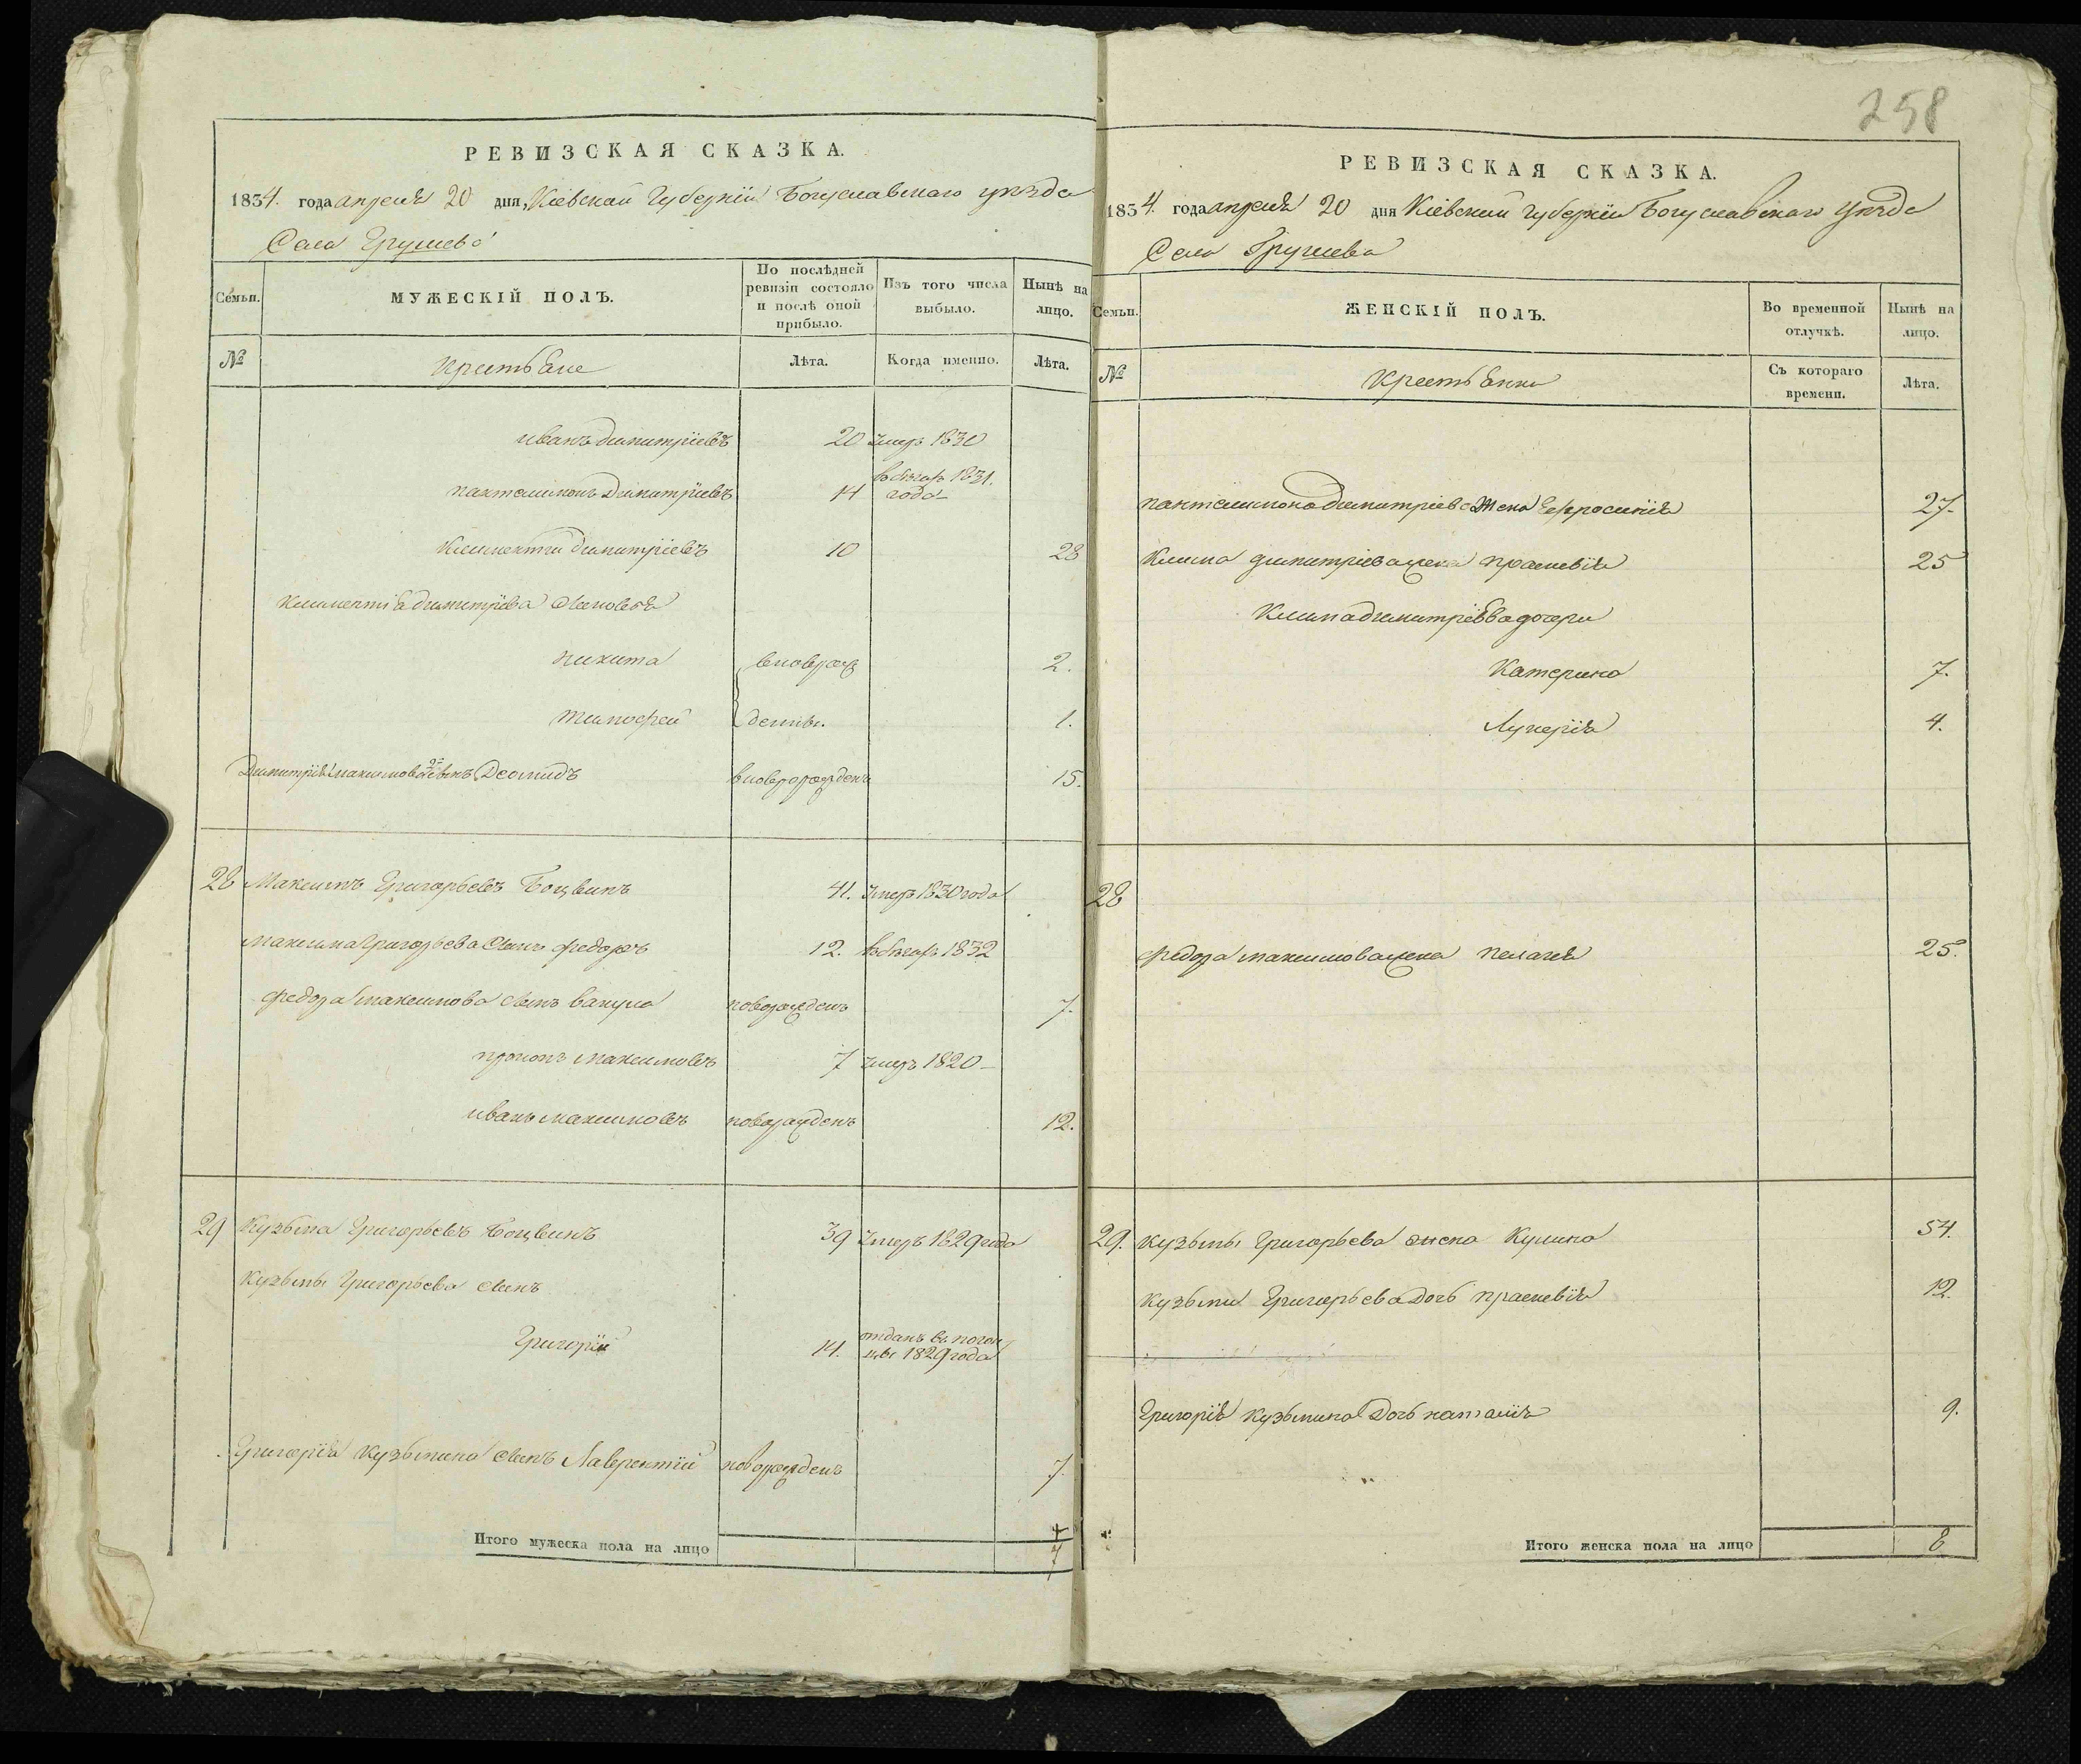 258
РЕВИЗСКАЯ СКАЗКА.
1834. года апреля 20 дня, Кіевской Губерніи Богуславскаго уѣзда
Села Грушева
Семьи. МУЖЕСКІЙ ПОЛЪ. По послѣдней ревизіи состояло и послѣ оной прибыло. Изъ того числа выбыло. Нынѣ на лицо.
№ Крестьяне Лѣта. Когда именно. Лѣта.
иванъ димитріевъ 20 умеръ 1830
пантелимонъ Димитріевъ 14 в бѣгах 1831. года
Климентій димитріевъ 10 28
климентія димитріева сыновья
никита вновьрож 2.
тимофей денны. 1.
Димитрія максимова сынъ Деомидъ вновьрожденъ 15.
28 Максимъ Григорьевъ Боцвинъ 41. умеръ 1830 года
максима Григорьева сынъ федоръ 12. в бѣгах 1832
федора максимова сынъ вакула новорожденъ 7.
прокопъ максимовъ 7 умеръ 1820
иванъ максимовъ новорожденъ 12.
29 Кузьма Григорьевъ Боцвинъ 39 умеръ 1829 года
Кузьмы Григорьева сынъ
Григорій 14. отданъ в погонцы 1829 года
Григорія Кузьмина сынъ Лаврентій новорожденъ 7.
Итого мужеска пола на лицо 7
РЕВИЗСКАЯ СКАЗКА.
1834. года апреля 20 дня Кіевской Губерніи Богуславскаго Уѣзда
Села Грушева
Семьи. ЖЕНСКІЙ ПОЛЪ. Во временной отлучкѣ. Нынѣ на лицо.
№ Крестьянки Съ котораго времени. Лѣта.
пантелимона димитріева Жена Ефросинія 27.
Клима димитріева жена праскевія 25
Клима димитріева дочери
Катерина 7.
Лукерія 4.
28
федора максимова жена пелагея 25.
29. Кузьмы Григорьева жена Кулина 54.
Кузьмы Григорьева Дочь праскевія 12.
Григорія Кузьмина Дочь наталія 9.
Итого женска пола на лицо 8